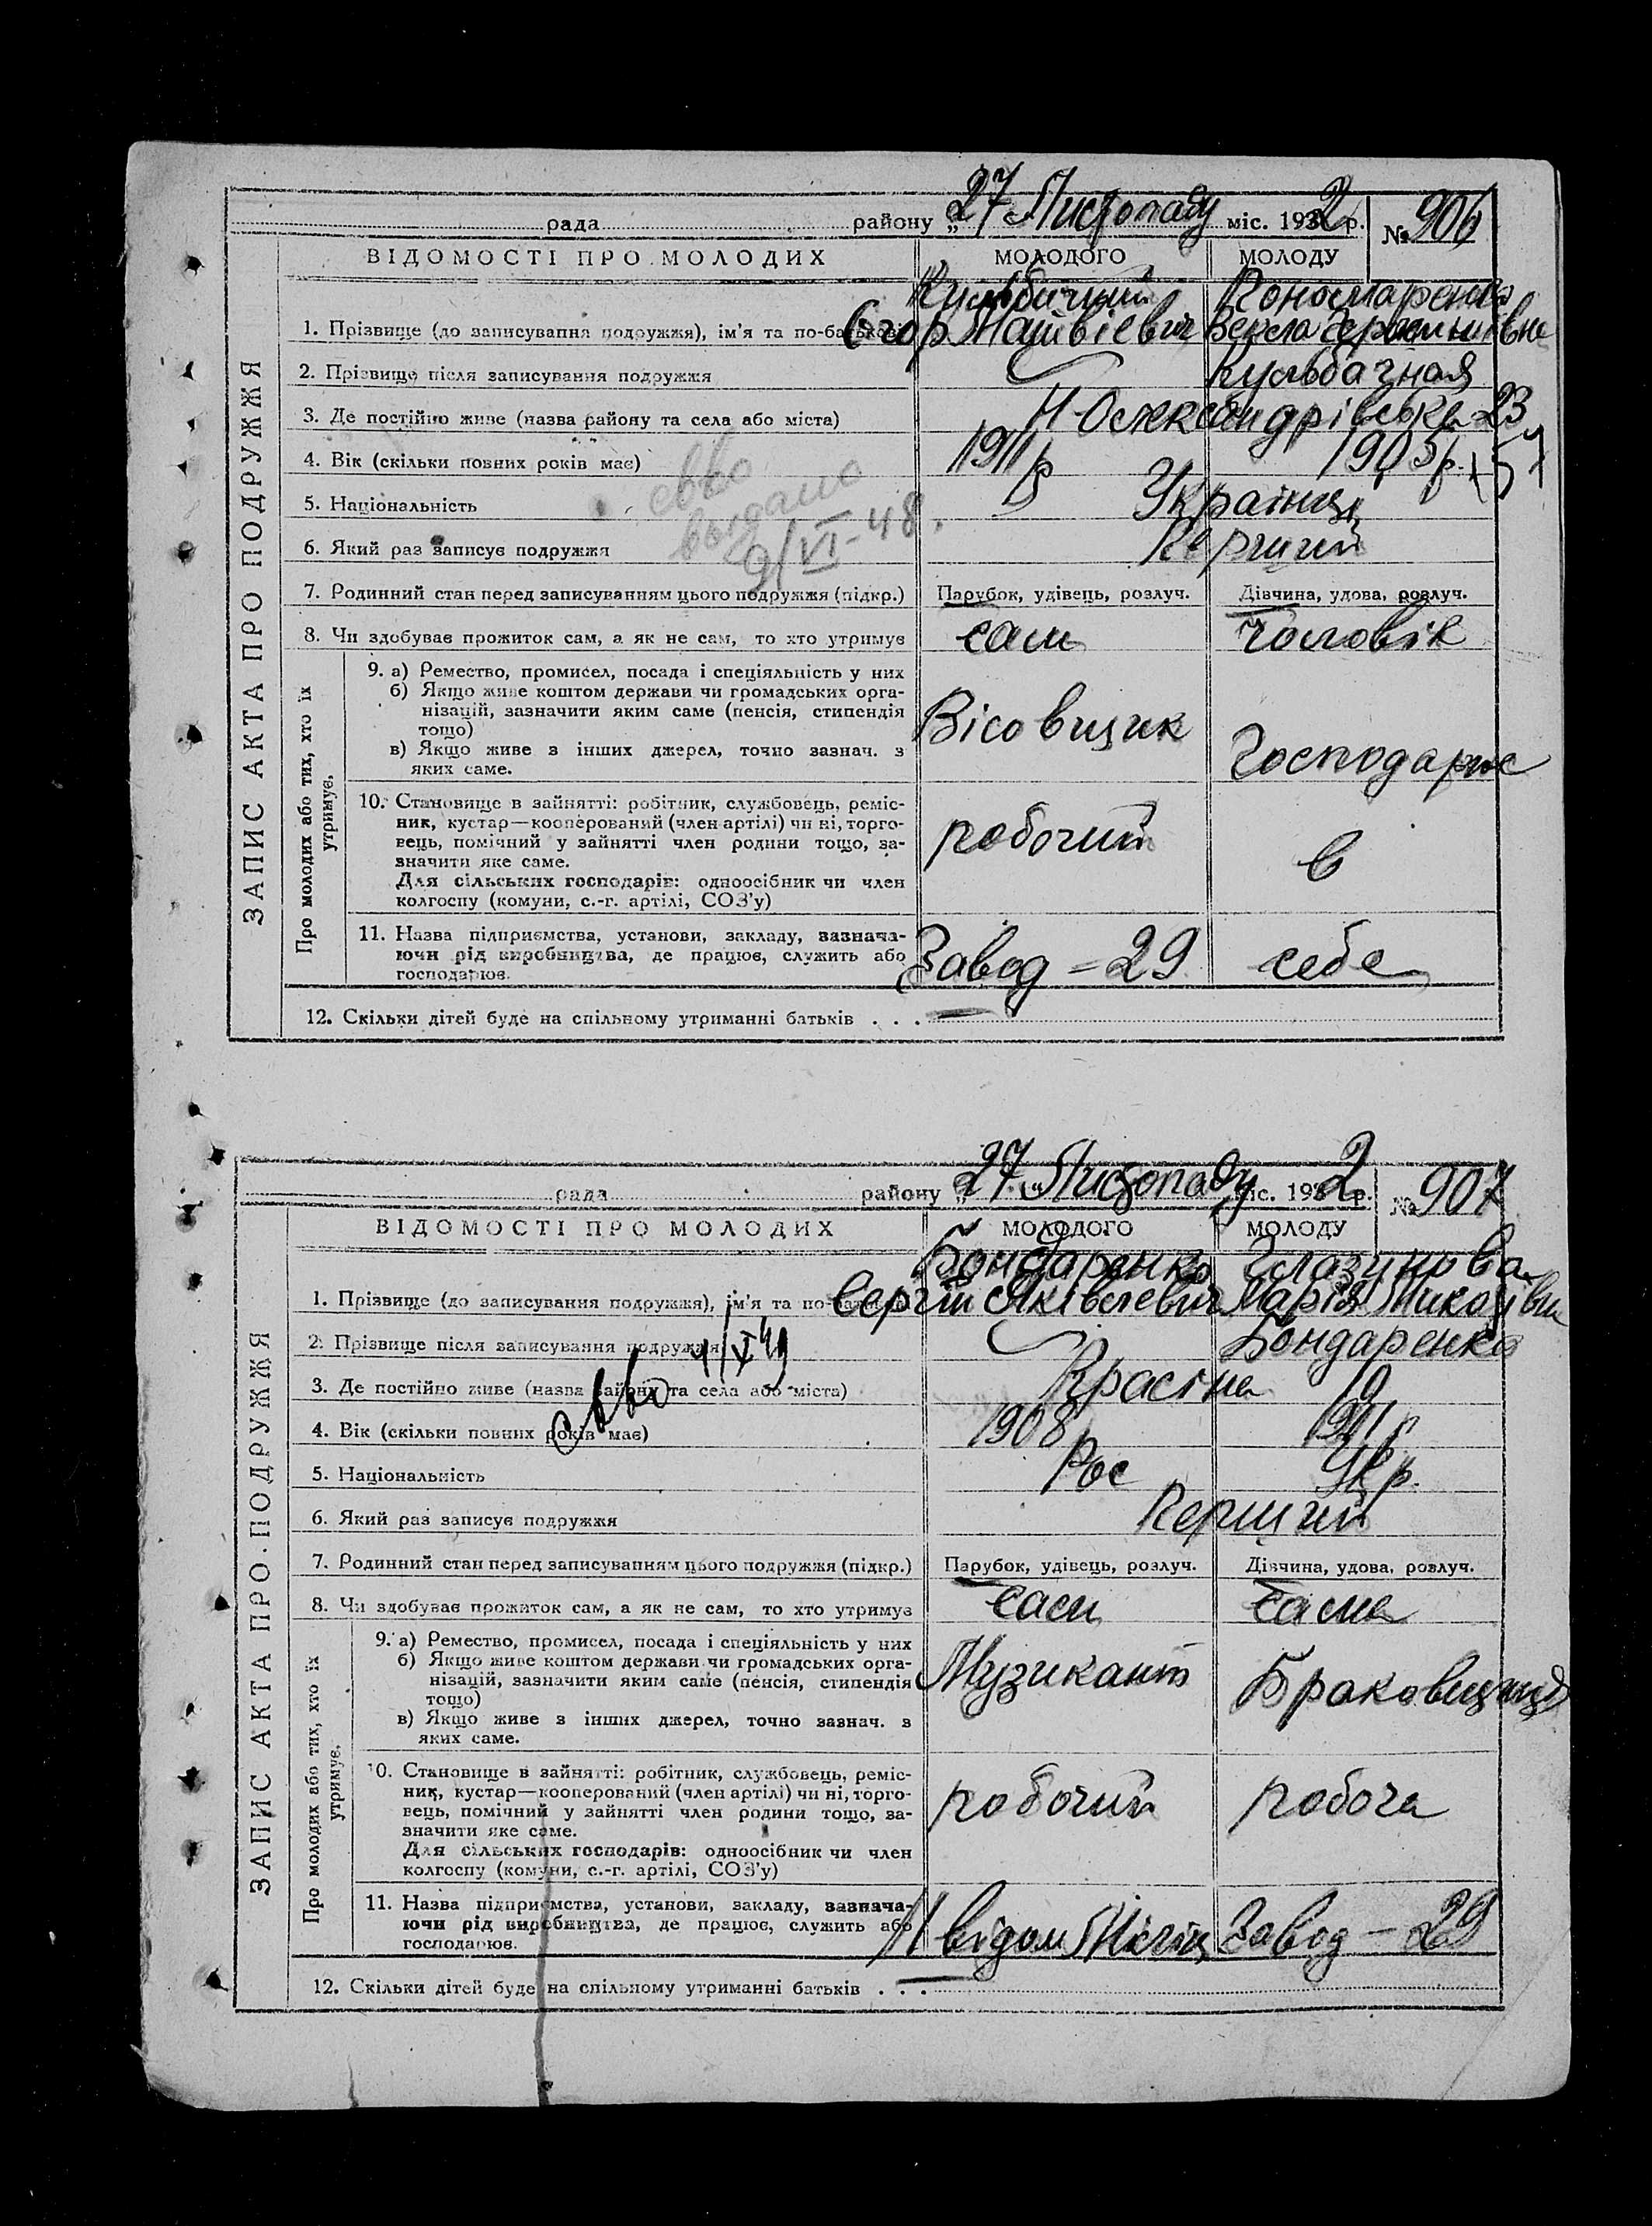 рада району „27 Листопаду міс. 1932 р. № 906
ВІДОМОСТІ ПРО МОЛОДИХ МОЛОДОГО МОЛОДУ
Пономаренко
1. Прізвище (до записування подружжя), ім'я та по-батькові Єгор Матвієвич Векла
2. Прізвище після записування подружжя Кульбачная
3. Де постійно живе (назва району та села або міста) Н-Олександрівська 23
4. Вік (скільки повних років має) 1911 р 1905 р. 157
5. Національність Українці
6. Який раз записує подружжя Перший
свво
выдано
9/VI-48.
7. Родинний стан перед записуванням цього подружжя (підкр.) Парубок, удівець, розлуч. Дівчина, удова, розлуч.
8. Чи здобуває прожиток сам, а як не сам, то хто утримує сам чоловік
ЗАПИС АКТА ПРО ПОДРУЖЖЯ
Про молодих або тих, хто їх утримує.
9. а) Ремество, промисел, посада і спеціяльність у них
б) Якщо живе коштом держави чи громадських орга-
нізацій, зазначити яким саме (пенсія, стипендія
тощо)
в) Якщо живе з інших джерел, точно зазнач. з
яких саме.
Вісовщик Господарює
10. Становище в зайнятті: робітник, службовець, реміс-
ник, кустар—кооперований (член артілі) чи ні, торго-
вець, помічний у зайнятті член родини тощо, за-
значити яке саме.
Для сільських господарів: одноосібник чи член
колгоспу (комуни, с.-г. артілі, СОЗ'у)
робочий в
11. Назва підприємства, установи, закладу, зазнача-
ючи рід виробництва, де працює, служить або
господарює.
Завод - 29 себе
12. Скільки дітей буде на спільному утриманні батьків . . . —
рада району „27 Листопаду міс. 1932 р. № 907
ВІДОМОСТІ ПРО МОЛОДИХ МОЛОДОГО МОЛОДУ
Бондаренко Глазунова
1. Прізвище (до записування подружжя), ім'я та по-батькові Сергій Яківлевич Марія Миколівн
2. Прізвище після записування подружжя Бондаренко
3. Де постійно живе (назва району та села або міста) Красіна 9
4. Вік (скільки повних років має) 1908 1911 р
5. Національність Рос Укр.
6. Який раз записує подружжя Перший
свво 4/X 49
7. Родинний стан перед записуванням цього подружжя (підкр.) Парубок, удівець, розлуч. Дівчина, удова, розлуч.
8. Чи здобуває прожиток сам, а як не сам, то хто утримує сам сама
ЗАПИС АКТА ПРО ПОДРУЖЖЯ
Про молодих або тих, хто їх утримує.
9. а) Ремество, промисел, посада і спеціяльність у них
б) Якщо живе коштом держави чи громадських орга-
нізацій, зазначити яким саме (пенсія, стипендія
тощо)
в) Якщо живе з інших джерел, точно зазнач. з
яких саме.
Музикант Браковщиця
10. Становище в зайнятті: робітник, службовець, реміс-
ник, кустар—кооперований (член артілі) чи ні, торго-
вець, помічний у зайнятті член родини тощо, за-
значити яке саме.
Для сільських господарів: одноосібник чи член
колгоспу (комуни, с.-г. артілі, СОЗ'у)
робочий робоча
11. Назва підприємства, установи, закладу, зазнача-
ючи рід виробництва, де працює, служить або
господарює.
відом Міліц Завод - 29
12. Скільки дітей буде на спільному утриманні батьків . . . —